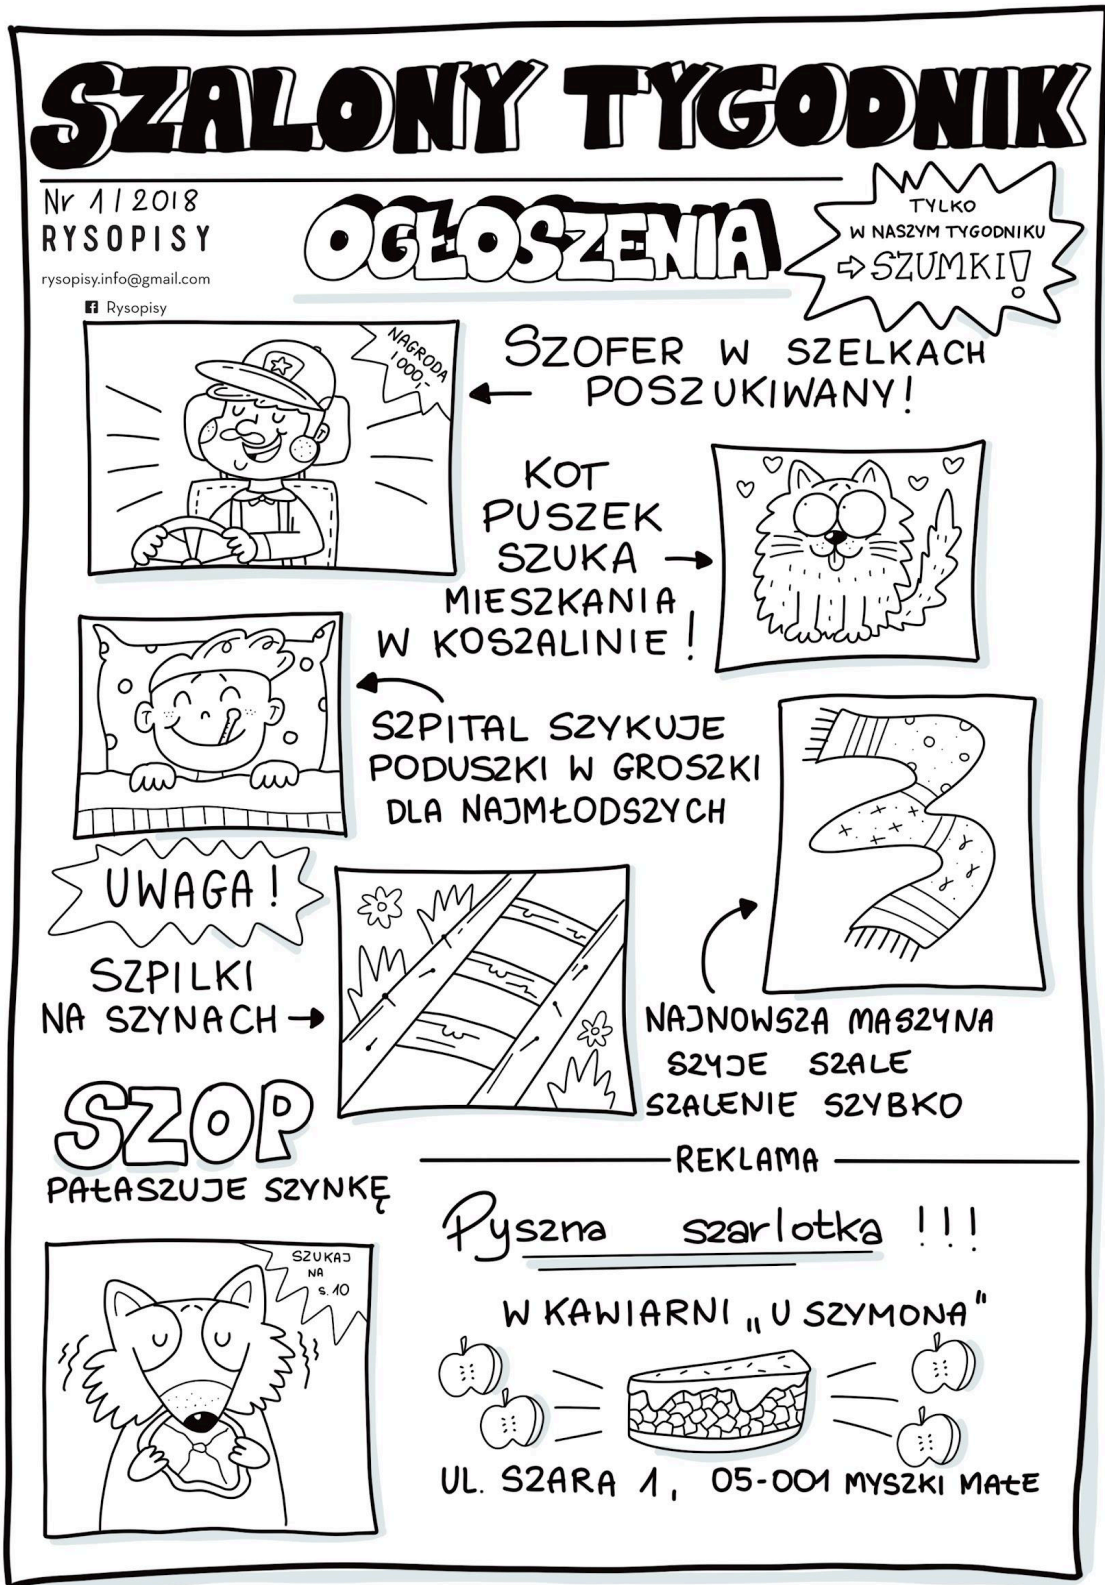 SZALONY TYGODNIK
Nr 1/2018
RYSOPISY
rysopisy.info@gmail.com
Rysopisy
OGŁOSZENIA
TYLKO
W NASZYM TYGODNIKU
⇨ SZUMKI!
NAGRODA
1000,-
SZOFER W SZELKACH
POSZUKIWANY!
KOT
PUSZEK
SZUKA
MIESZKANIA
W KOSZALINIE!
SZPITAL SZYKUJE
PODUSZKI W GROSZKI
DLA NAJMŁODSZYCH
UWAGA!
SZPILKI
NA SZYNACH
NAJNOWSZA MASZYNA
SZYJE SZALE
SZALENIE SZYBKO
SZOP
PAŁASZUJE SZYNKĘ
SZUKAJ
NA
s. 10
REKLAMA
Pyszna szarlotka !!!
W KAWIARNI „U SZYMONA"
UL. SZARA 1, 05-001 MYSZKI MAŁE